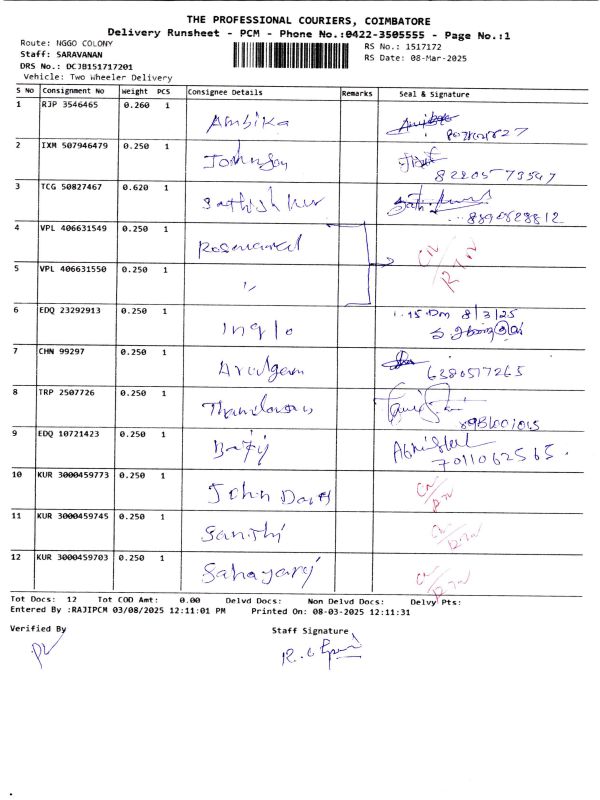 THE PROFESSIONAL COURIERS, COIMBATORE
Delivery Runsheet - PCM - Phone No.:0422-3505555 - Page No.:1
Route: NGGO COLONY
RS No.: 1517172
Staff: SARAVANAN
RS Date: 08-Mar-2025
DRS No.: DCJB151717201
Vehicle: Two Wheeler Delivery
S No Consignment No Weight PCS Consignee Details Remarks Seal & Signature
1 RJP 3546465 0.260 1 Ambika
2 IXM 507946479 0.250 1 Johnson 8220573547
3 TCG 50827467 0.620 1 Sathish kur 8890828812
4 VPL 406631549 0.250 1 Rosemared CN/RTN
5 VPL 406631550 0.250 1 "
6 EDQ 23292913 0.250 1 8/3/25
7 CHN 99297 0.250 1 6380517265
8 TRP 2507726 0.250 1
9 EDQ 10721423 0.250 1 7011062565
10 KUR 3000459773 0.250 1 John David
11 KUR 3000459745 0.250 1 Santhi
12 KUR 3000459703 0.250 1 Sahayaraj
Tot Docs: 12 Tot COD Amt: 0.00 Delvd Docs: Non Delvd Docs: Delvy Pts:
Entered By :RAJIPCM 03/08/2025 12:11:01 PM Printed On: 08-03-2025 12:11:31
Verified By Staff Signature